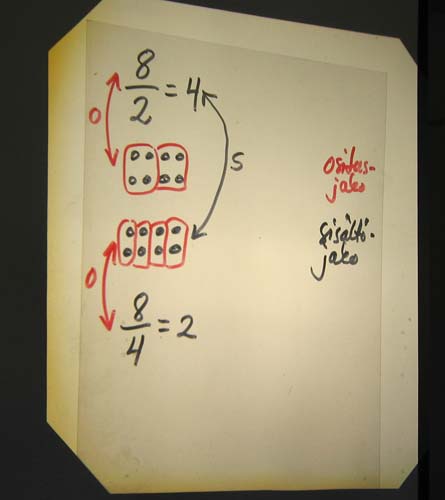 8
2
= 4
O
S
Ositus-
jako
Sisältö-
jako
O
8
4
= 2